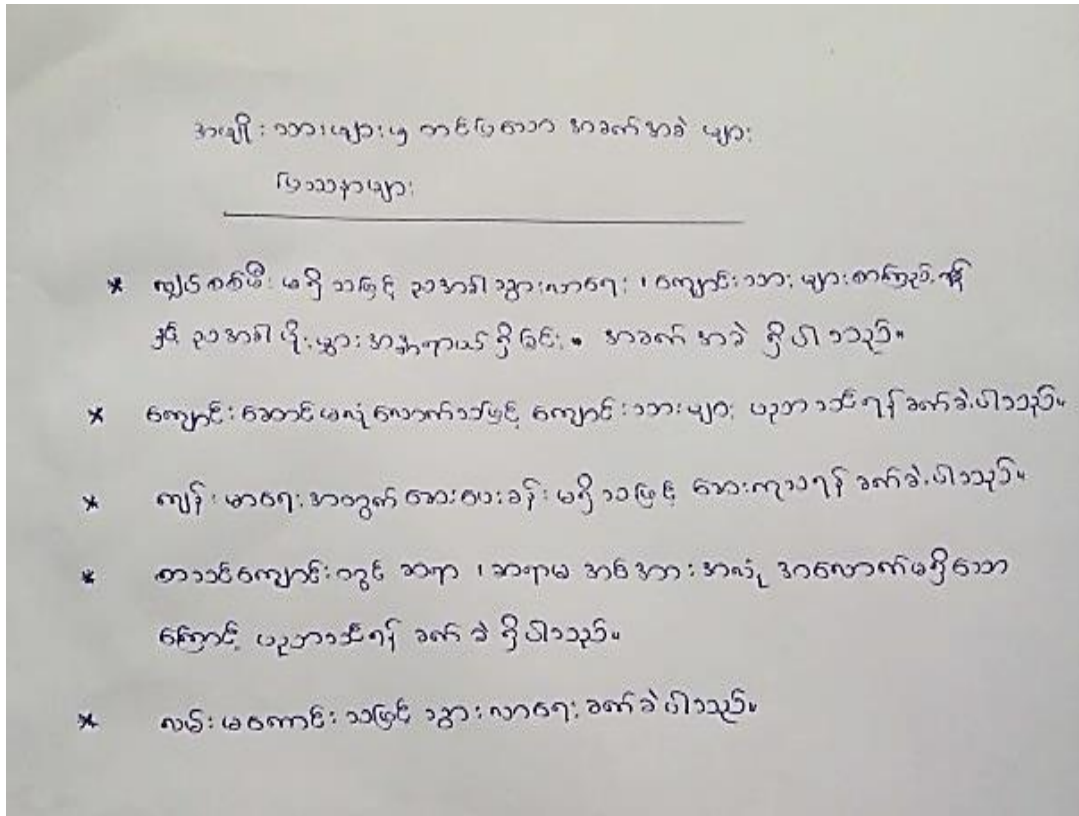 အမျိုးသားများမှ တင်ပြသော အခက်အခဲ များ
ပြဿနာများ
* လျှပ်စစ်မီး မရှိသဖြင့် ညအခါ သွားလာရေး ၊ ကျောင်းသား များစာကြည့်ရန်
နှင့် ညအခါ ပိုးမွှား အန္တရာယ် ရှိခြင်း ။ အခက် အခဲ ရှိပါသည်။
* ကျောင်းဆောင် မလုံလောက်သဖြင့် ကျောင်းသားများ ပညာသင်ရန် ခက်ခဲပါသည်။
* ကျန်းမာရေး အတွက် ဆေးပေးခန်း မရှိသဖြင့် ဆေးကုသရန် ခက်ခဲပါသည်။
* စာသင်ကျောင်းတွင် ဆရာ ၊ ဆရာမ အင်အား အလုံ အလောက်မရှိသော
ကြောင့် ပညာသင်ရန် ခက် ခဲ ရှိပါသည်။
* လမ်း မကောင်း သဖြင့် သွားလာရေး ခက်ခဲပါသည်။